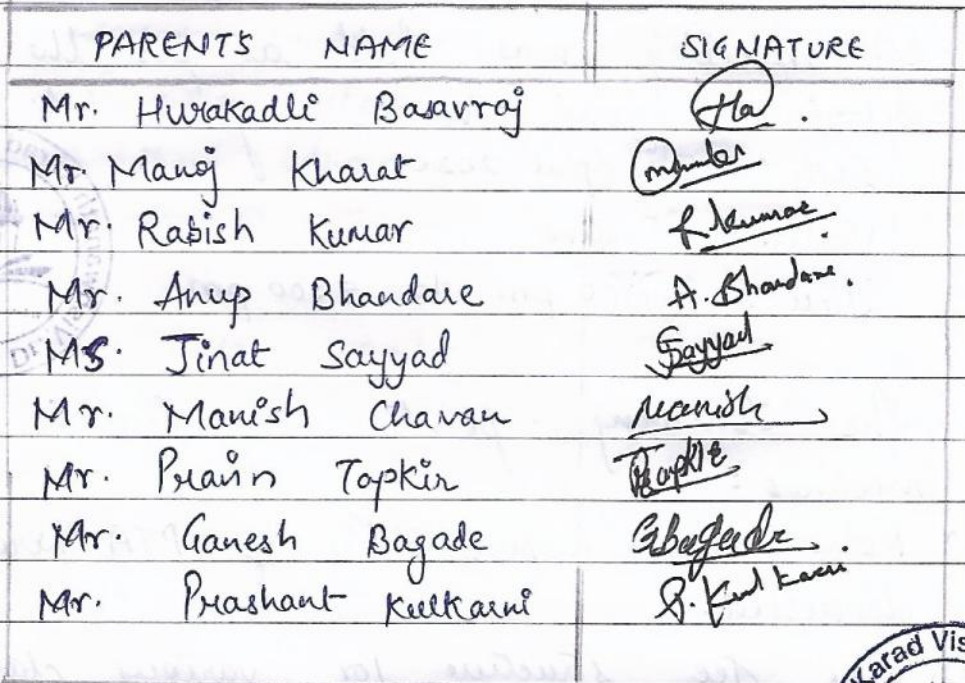 PARENTS NAME SIGNATURE
Mr. Hurakadli Basavraj Ha.
Mr. Manoj Kharat
Mr. Rabish Kumar R Kumar
Mr. Anup Bhandare A. Bhandare.
Ms. Jinat Sayyad Sayyad
Mr. Manish Chavan Manish
Mr. Pravin Tapkir
Mr. Ganesh Bagade Gbagade.
Mr. Prashant Kulkarni P. Kulkarni
Karad Vis